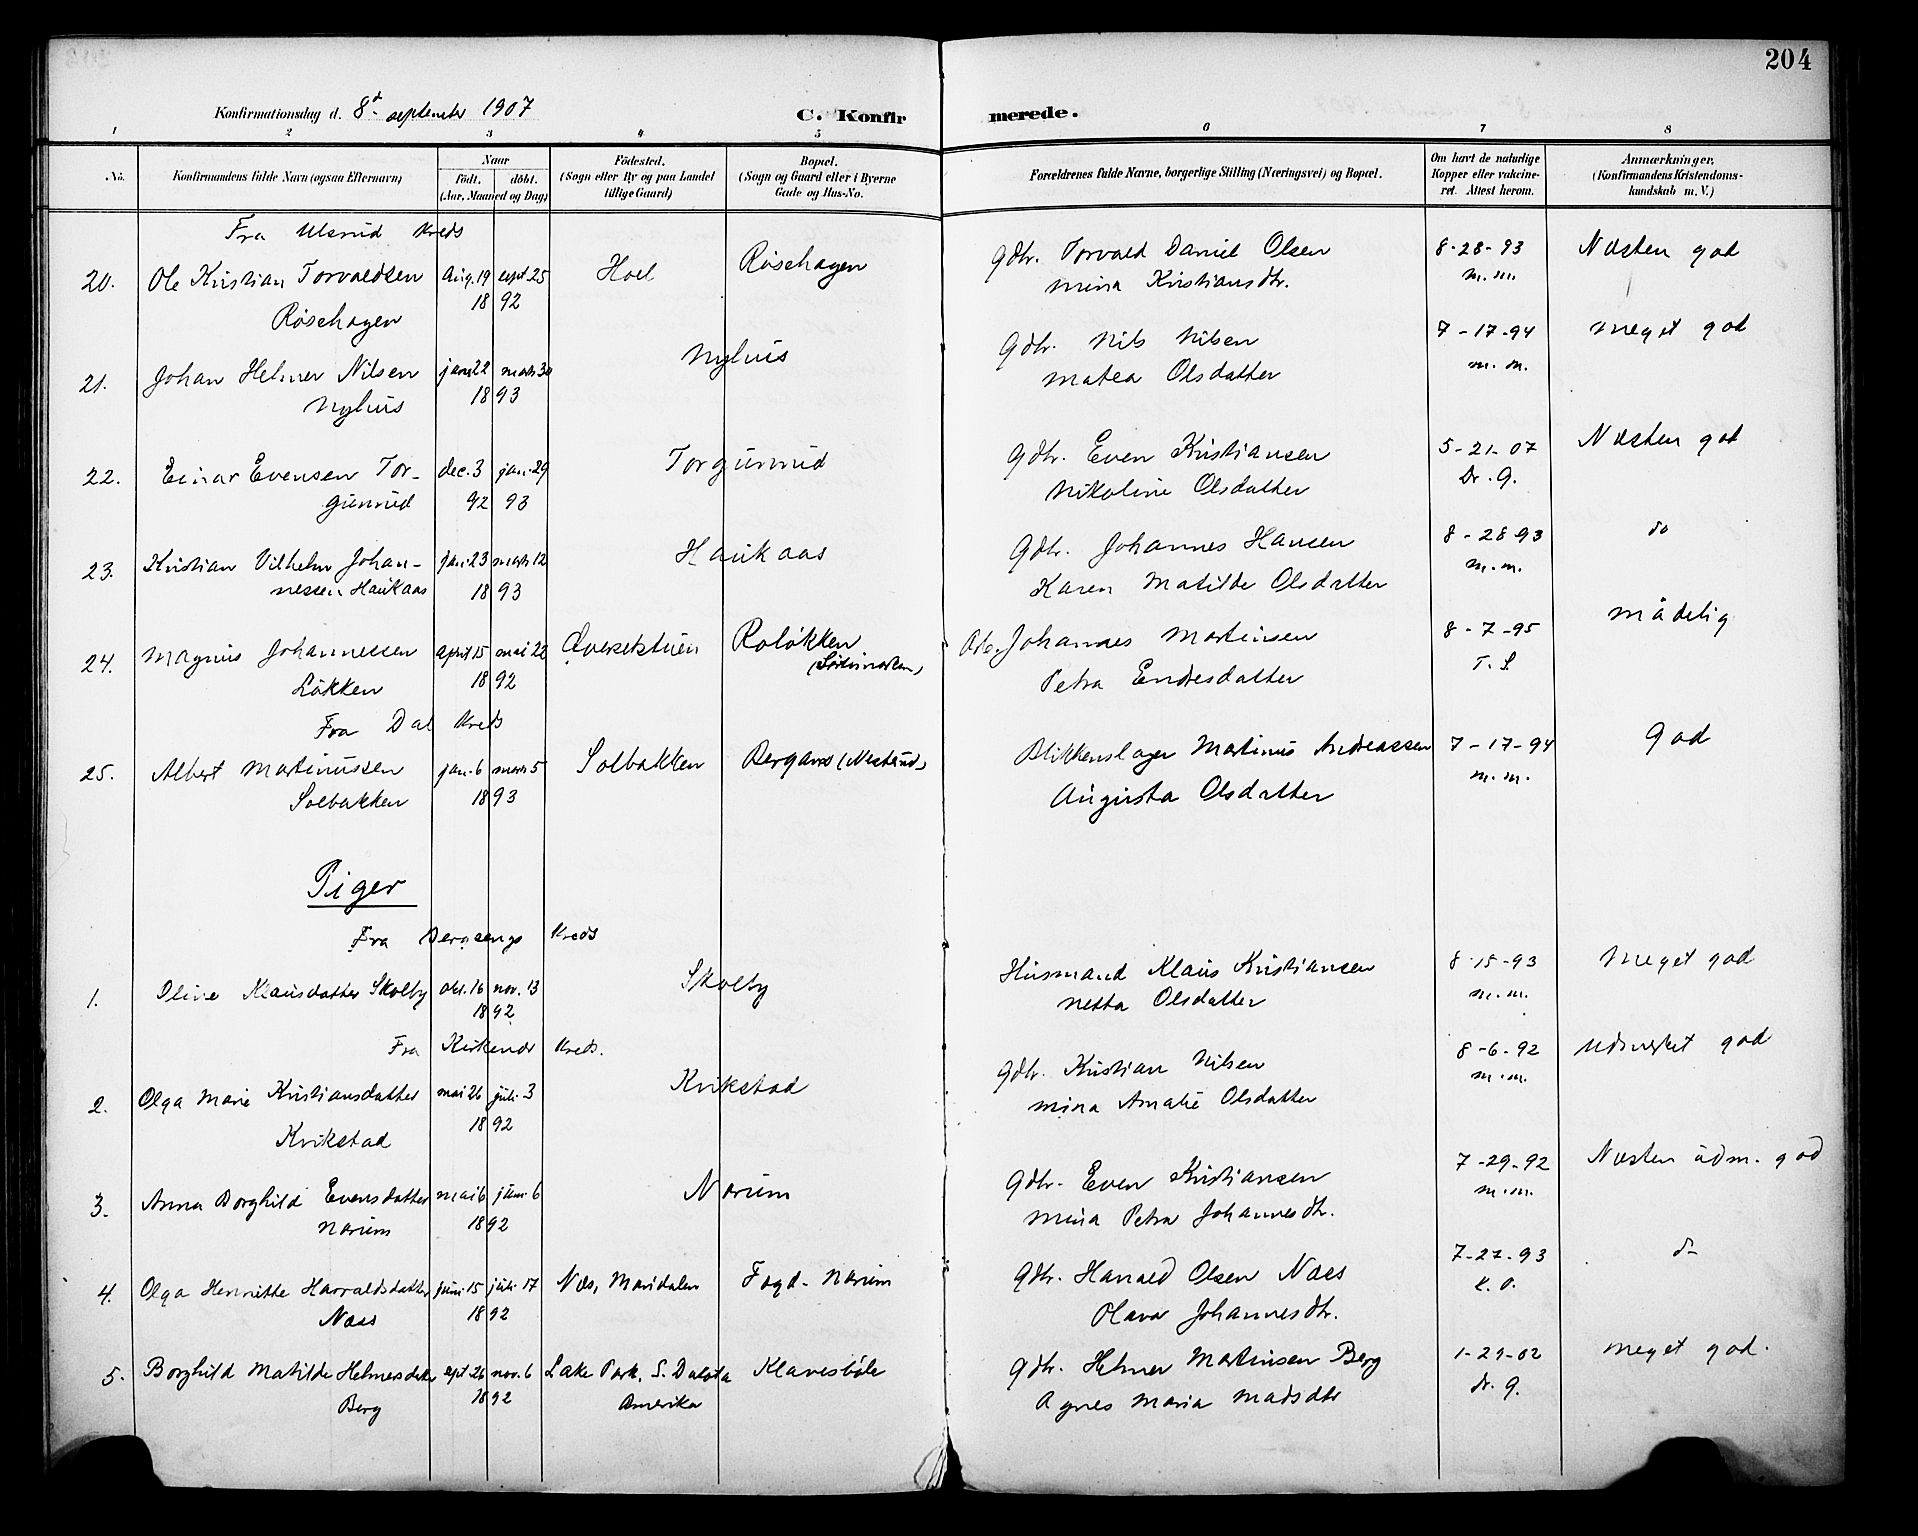 204
Konfirmationsdag d. 8d september 1907
C. Konfirmerede.
1 2 3 4 5 6 7 8
No.
Konfirmandens fulde Navn (ogsaa Efternavn)
Naar
födt. döbt.
(Aar, Maaned og Dag)
Födested.
(Sogn eller By og paa Landet
tillige Gaard)
Bopæl.
(Sogn og Gaard eller i Byerne
Gade og Hus-No.
Forældrenes fulde Navne, borgerlige Stilling (Næringsvei) og Bopæl.
Om havt de naturlige
Kopper eller vakcine-
ret. Attest herom.
Anmærkninger,
(Konfirmandens Kristendoms-
kundskab m. V.)
Fra Ulsrud Kreds
20. Ole Kristian Torvaldsen aug. 19 sept 25 Hoel Röschagen Gdbr. Torvald Daniel Olsen 8-28-93 Næsten god
Röschagen 18 92 Mina Kristiansdtr. m.m.
21. Johan Helmer Nilsen jan 22 marts 30 Nyhus Gdbr. Nils Nilsen 7-17-94 Meget god
Nyhus 18 93 Matea Olsdatter m.m.
22. Einar Evensen Tor- dec. 3 jan. 29 Torgunrud Gdbr. Even Kristiansen 5-21-07 Næsten god
gunrud 92 93 Nikoline Olsdatter Dr. G.
23. Kristian Vilhelm Johan- jan. 23 marts 12 Haukaas Gdbr. Johannes Hansen 8-28-93 do
nessen Haukaas 18 93 Karen Matilde Olsdatter m.m.
24. Magnus Johannessen april 15 mai 22 Qværkstuen Rolökken Johannes Martinsen 8-7-95 mådelig
Lökken 18 92 Petra Endresdatter T. S.
Fra Dal Kreds
25. Albert Martinussen jan. 6 marts 5 Solbakken Bergans (Nestrud) Blikkenslager Martinus Andreassen 7-17-94 God
Solbakken 18 93 Augusta Olsdatter m.m.
Piger
Fra Bernsengs Kreds
1. Oline Klausdatter Skolby okt. 16 nov. 13 Skolby Husmand Klaus Kristiansen 8-15-93 Meget god
18 92 Netta Olsdatter m.m.
Fra Kirkenær Kreds.
2. Olga Marie Kristiansdatter mai 26 juli 3 Kvikstad Gdbr. Kristian Nilsen 8-6-92 Udmerket god
Kvikstad 18 92 Mina Amalie Olsdatter m.m.
3. Anna Borghild Evensdatter mai 6 juni 6 Norum Gdbr. Even Kristiansen 7-29-92 Næsten udm. god
Norum 18 92 Mina Petra Johannesdtr. m.m.
4. Olga Henriette Harraldsdatter juni 15 juli 17 Næs, Maridalen Fogd-Norum Gdbr. Harrald Olsen Næss 7-27-93 do
Næss 18 92 Olava Johannesdtr. K. O.
5. Borghild Matilde Helmersdatter sept 26 nov. 6 Lake Park, S. Dakota Klavesböle Gdbr. Helmer Martinsen Berg 1-29-02 meget god.
Berg 18 92 Amerika Agnes Maria Madsdtr dr. G.